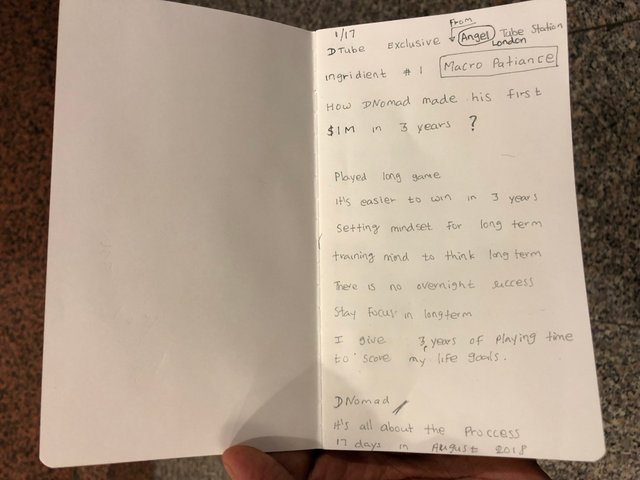 1/17
From
DTube Exclusive Angel Tube Station
London
ingridient #1 Macro Patiance
How DNomad made his first
$1M in 3 years ?
Played long game
it's easier to win in 3 years
setting mindset for long term
training mind to think long term
There is no overnight success
Stay Focus in longterm
I give 3 years of playing time
to score my life goals.
DNomad
it's all about the Proccess
17 days in AUgust 2018